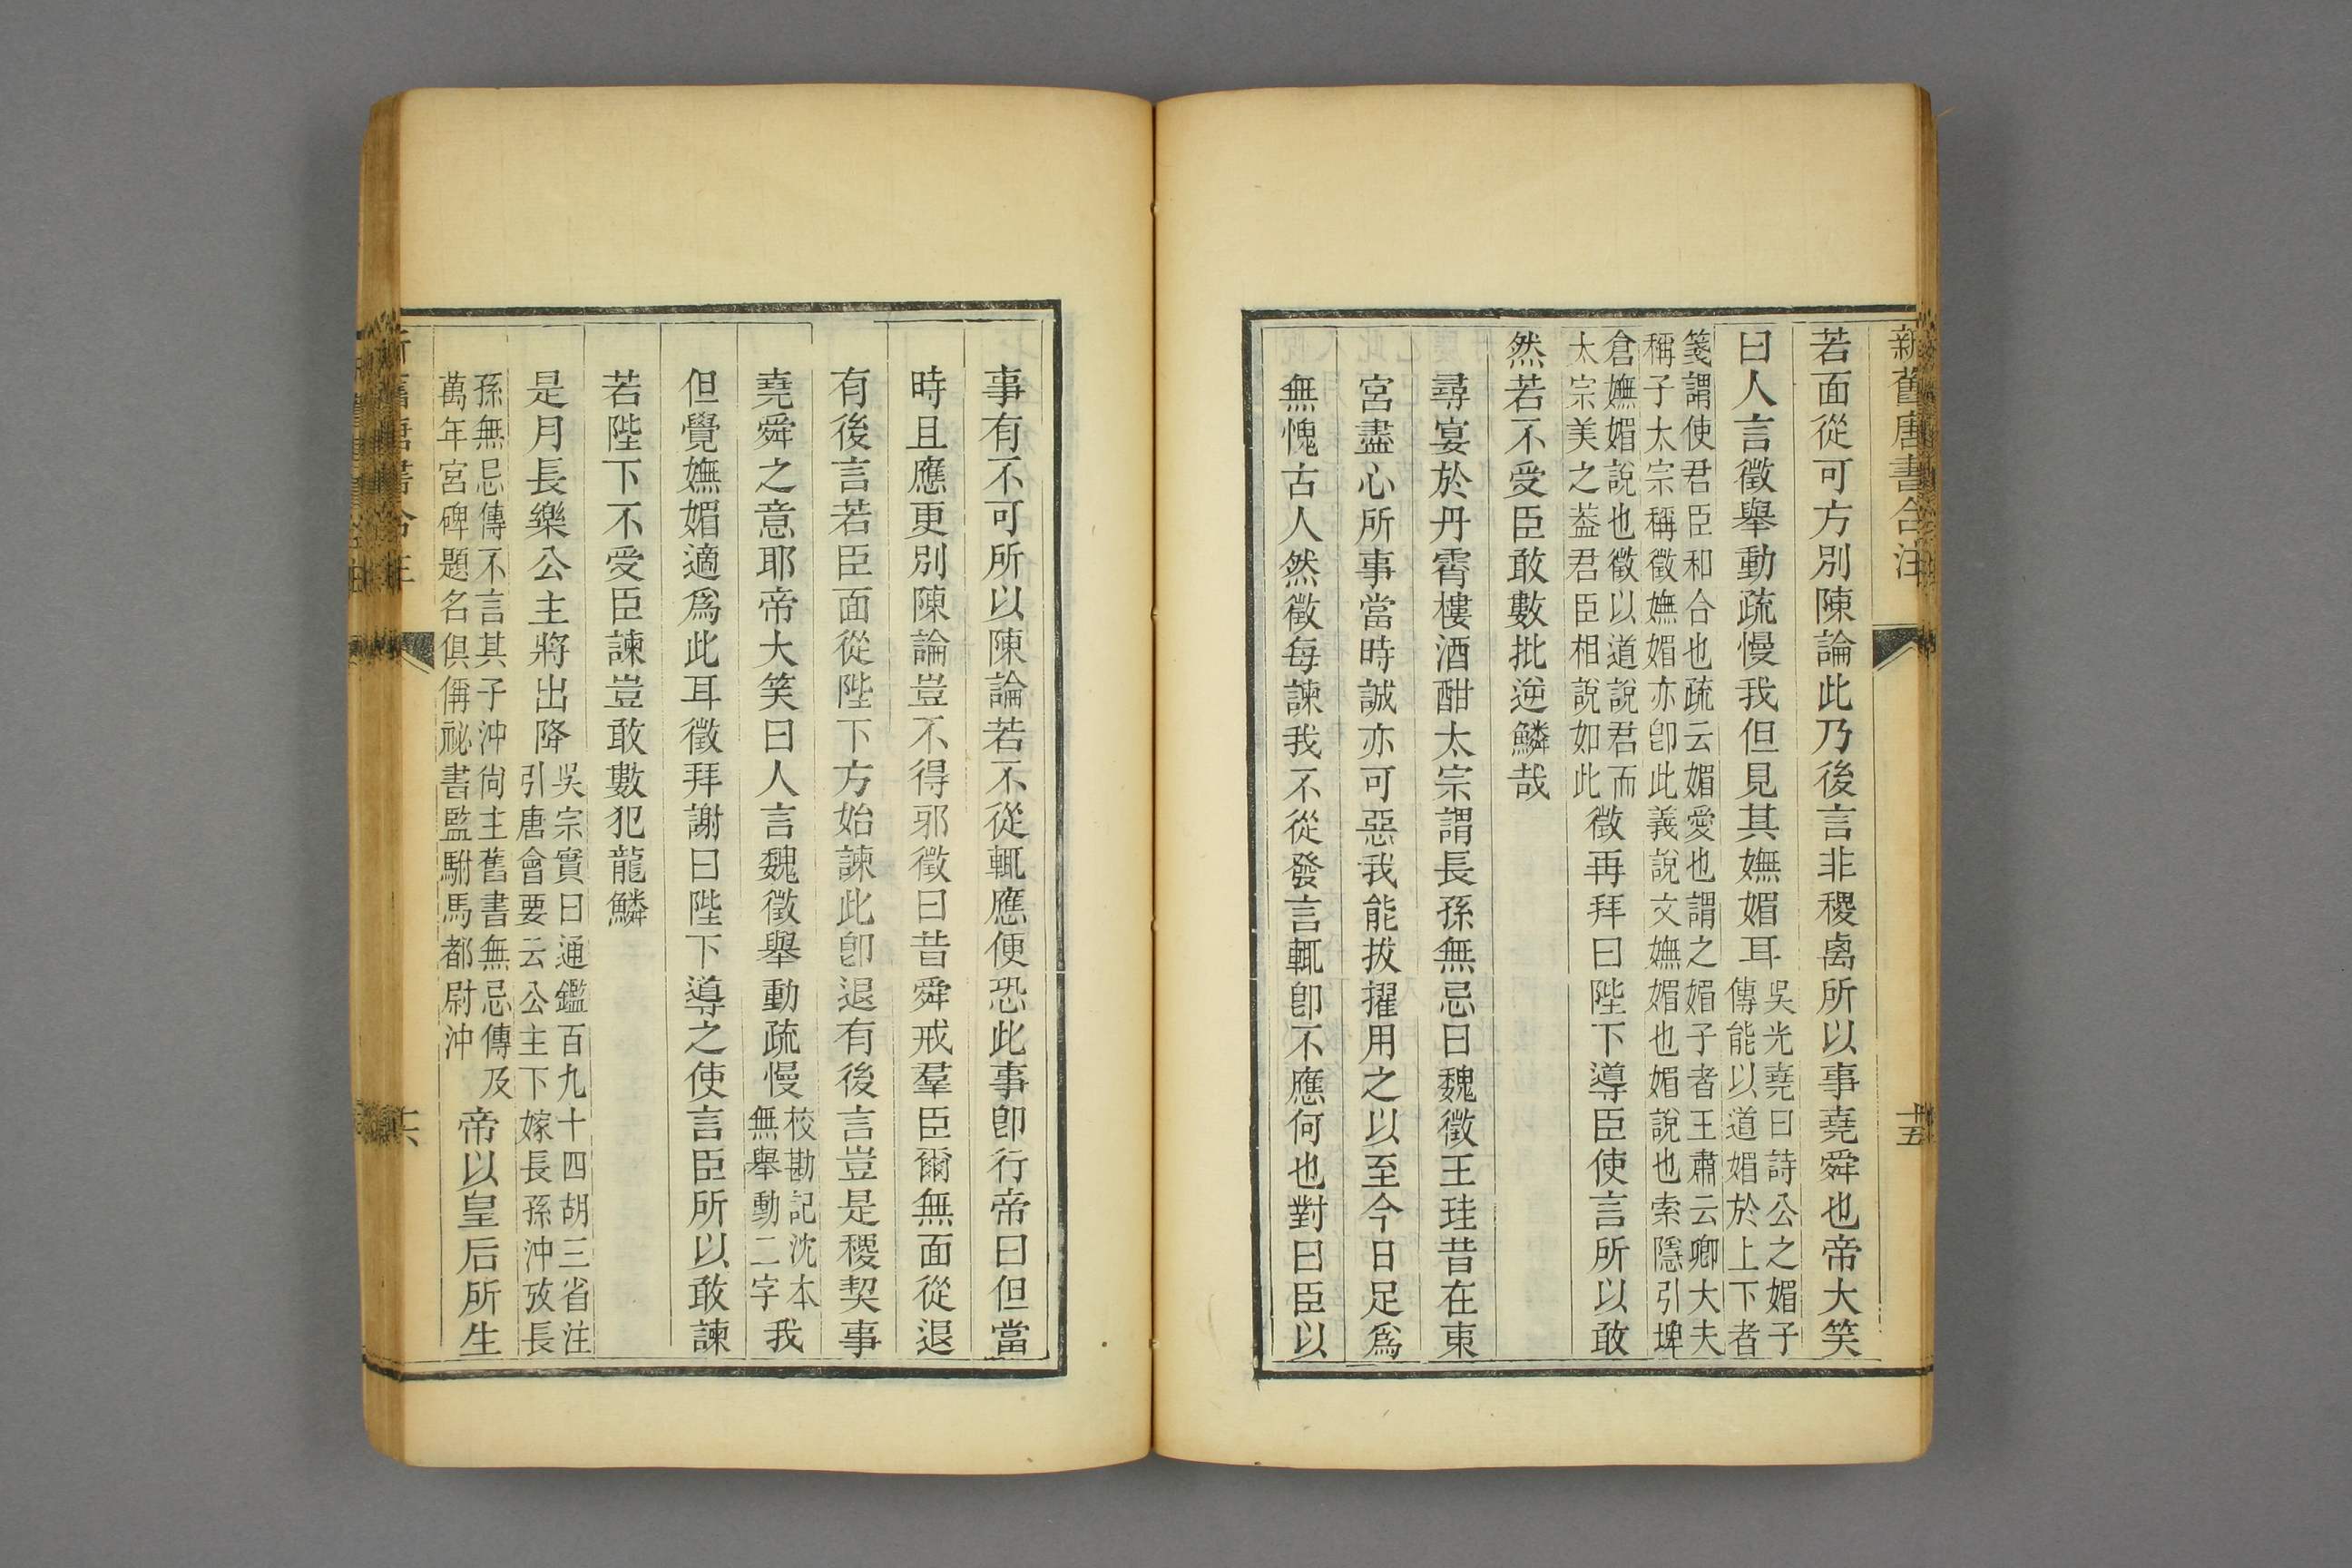 新舊唐書合注
十五
若面從可方別陳論此乃後言非稷卨所以事堯舜也帝大笑
曰人言徵舉動疏慢我但見其嫵媚耳
吳光堯曰詩公之媚子
傳能以道媚於上下者
箋謂使君臣和合也疏云媚愛也謂之媚子者王肅云卿大夫
稱子太宗稱徵嫵媚亦卽此義說文嫵媚也媚說也索隱引埤
倉嫵媚說也徵以道說君而
太宗美之葢君臣相說如此
徵再拜曰陛下導臣使言所以敢
然若不受臣敢數批逆鱗哉
尋宴於丹霄樓酒酣太宗謂長孫無忌曰魏徵王珪昔在東
宮盡心所事當時誠亦可惡我能拔擢用之以至今日足爲
無愧古人然徵每諫我不從發言輒卽不應何也對曰臣以
事有不可所以陳論若不從輒應便恐此事卽行帝曰但當
時且應更別陳論豈不得邪徵曰昔舜戒羣臣爾無面從退
有後言若臣面從陛下方始諫此卽退有後言豈是稷契事
堯舜之意耶帝大笑曰人言魏徵舉動疏慢
校勘記沈本
無舉動二字
我
但覺嫵媚適爲此耳徵拜謝曰陛下導之使言臣所以敢諫
若陛下不受臣諫豈敢數犯龍鱗
是月長樂公主將出降
吳宗實曰通鑑百九十四胡三省注
引唐會要云公主下嫁長孫沖攷長
孫無忌傳不言其子沖尙主舊書無忌傳及
萬年宮碑題名俱偁祕書監駙馬都尉沖
帝以皇后所生
十六